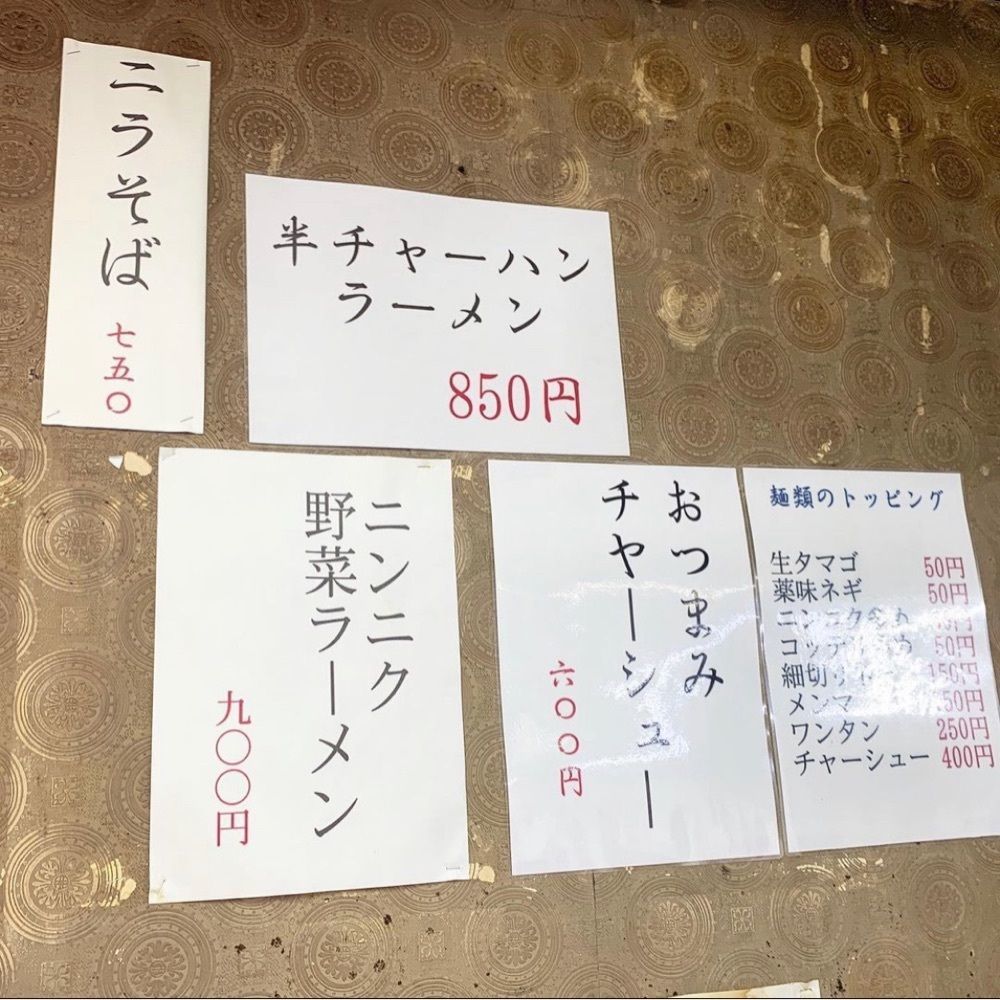 ニうそば
七五〇
半チャーハン
ラーメン
850円
ニンニク
野菜ラーメン
九〇〇円
おつまみ
チャーシュー
六〇〇円
麺類のトッピング
生タマゴ 50円
薬味ネギ 50円
ニンニク
コッテ 50円
細切り 150円
メンマ
ワンタン 250円
チャーシュー 400円